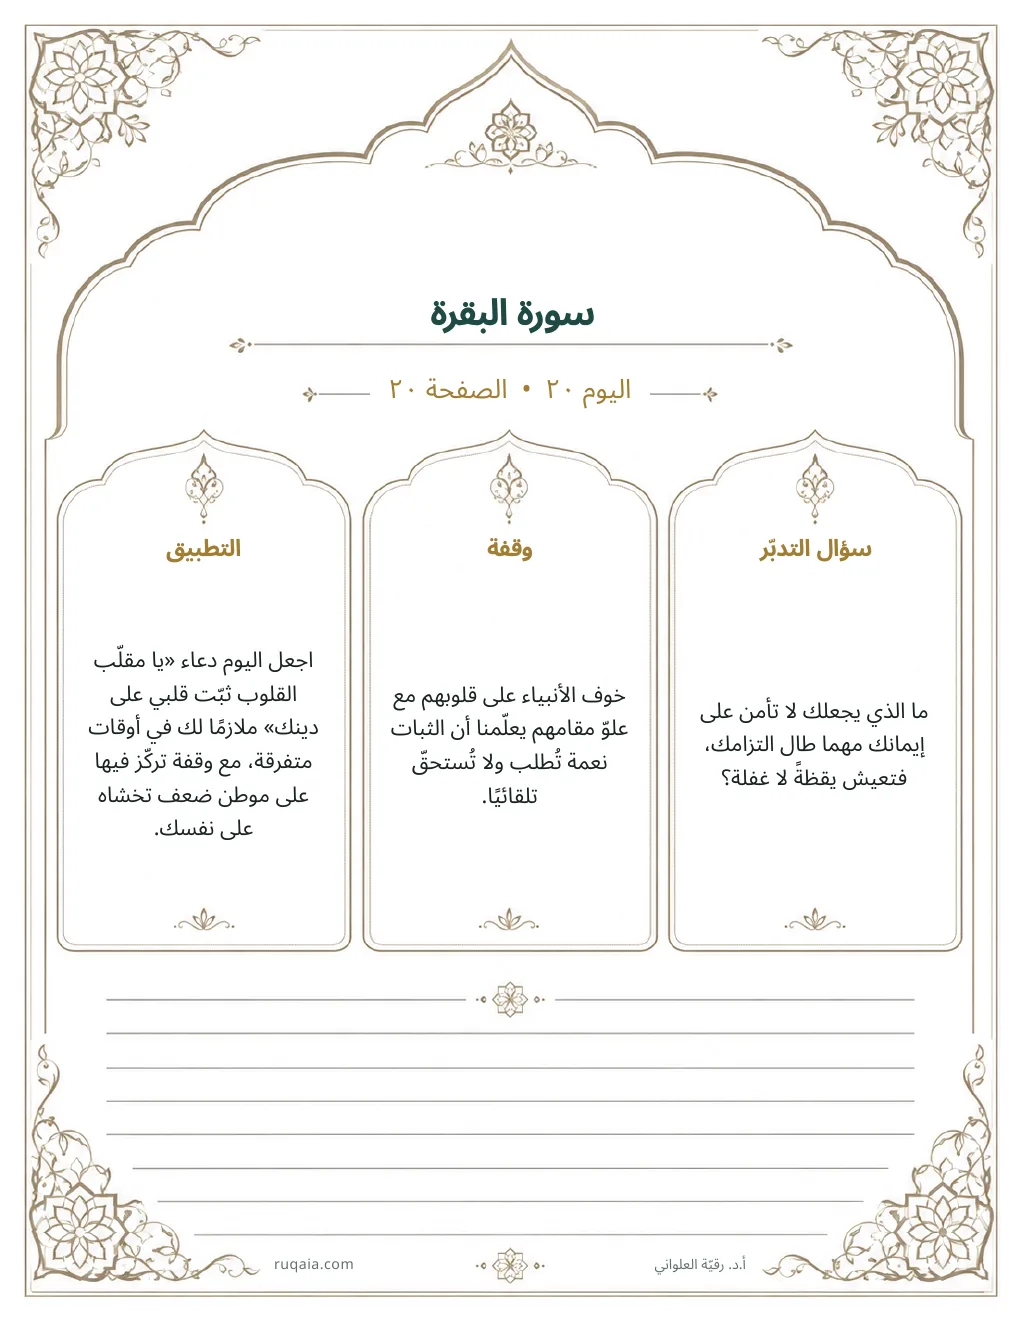 سورة البقرة
اليوم ٢٠ • الصفحة ٢٠
سؤال التدبّر
ما الذي يجعلك لا تأمن على
إيمانك مهما طال التزامك،
فتعيش يقظةً لا غفلة؟
وقفة
خوف الأنبياء على قلوبهم مع
علوّ مقامهم يعلّمنا أن الثبات
نعمة تُطلب ولا تُستحقّ
تلقائيًا.
التطبيق
اجعل اليوم دعاء «يا مقلّب
القلوب ثبّت قلبي على
دينك» ملازمًا لك في أوقات
متفرقة، مع وقفة تركّز فيها
على موطن ضعف تخشاه
على نفسك.
أ.د. رقيّة العلواني
ruqaia.com